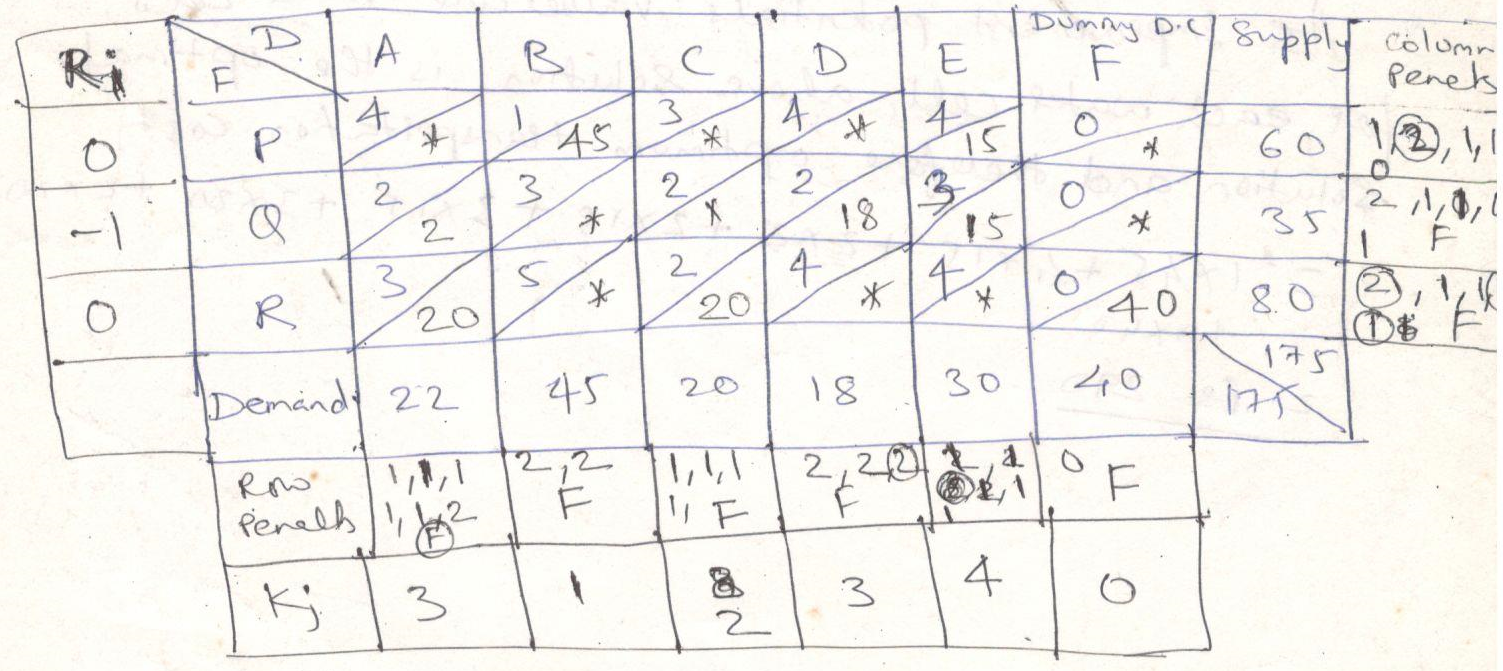 Ri D. F A B C D E Dummy D.C F Supply Column Penets
0 P 4 * 1 45 3 * 4 * 4 15 0 * 60 1, 2, 1, 1 0
-1 Q 2 2 3 * 2 * 2 18 3 15 0 * 35 2, 1, 1, 1 1 F
0 R 3 20 5 * 2 20 4 * 4 * 0 40 80 2, 1, 1 1 F
Demand 22 45 20 18 30 40 175 175
Row Penelts 1, 1, 1 1, 1, 2 F 2, 2 F 1, 1, 1 1, F 2, 2, 2 F 1 0 F
Kj 3 1 2 3 4 0